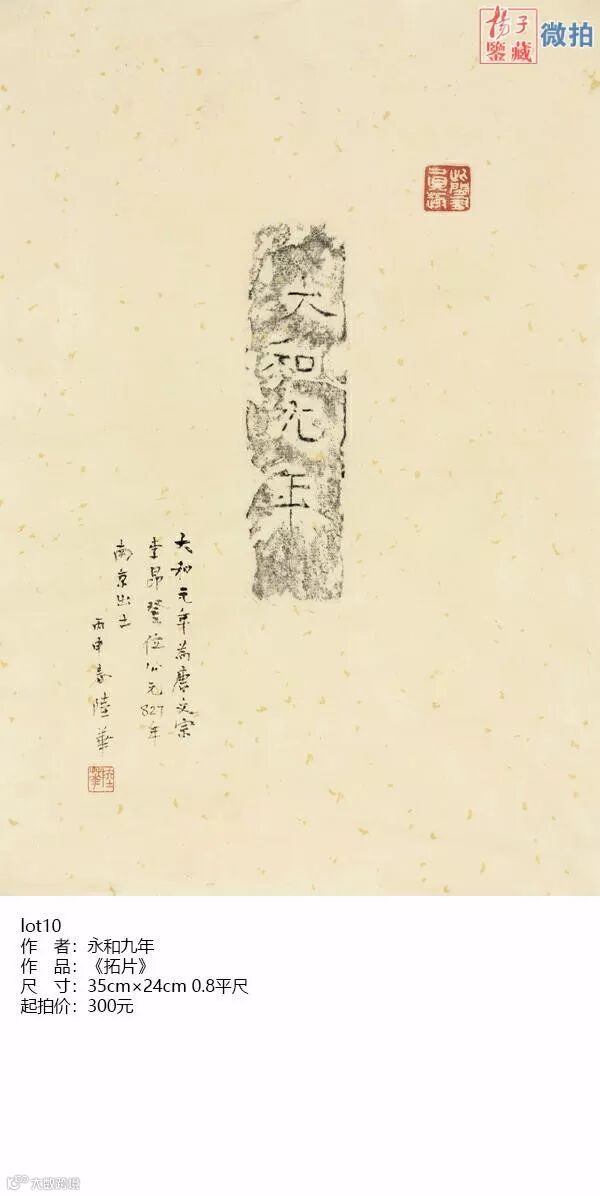 揚子
鑒藏
微拍
大和元年
大和元年為唐文宗
李昂登位公元827年
南京出土
丙申春陸華
lot10
作 者：永和九年
作 品：《拓片》
尺 寸：35cm×24cm 0.8平尺
起拍价：300元